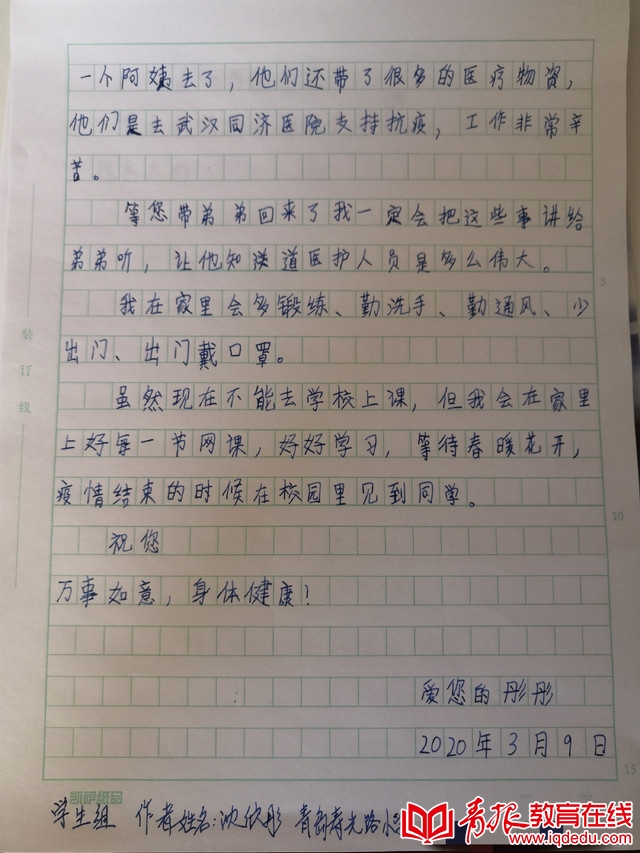 一个阿姨去了，他们还带了很多的医疗物资，
他们是去武汉同济医院支持抗疫，工作非常辛
苦。
等您带弟弟回来了我一定会把这些事讲给
弟弟听，让他知道医护人员是多么伟大。
我在家里会多锻练、勤洗手、勤通风、少
出门、出门戴口罩。
虽然现在不能去学校上课，但我会在家里
上好每一节网课，好好学习，等待春暖花开，
疫情结束的时候在校园里见到同学。
祝您
万事如意，身体健康！
爱您的彤彤
2020年3月9日
学生组 作者姓名:沈欣彤 青岛寿光路小
装订线
5
10
15
凯萨纸品
青报教育在线
www.iqdedu.com